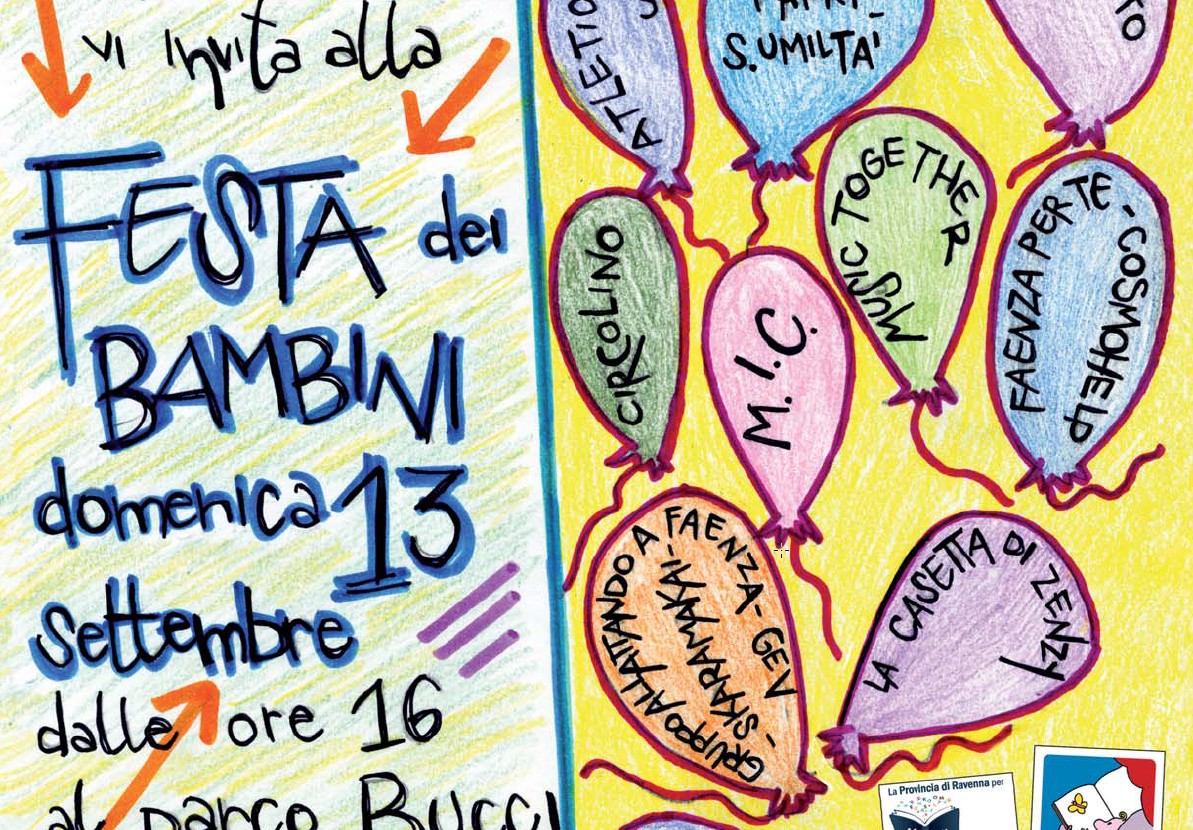 vi invita alla
FESTA dei
BAMBINI
domenica 13
settembre
dalle ore 16
al parco Bucci
S. UMILTA'
TO
CIRCOLINO
M.I.C.
MUSIC TOGETHER
FAENZA PER TE - COSMOHELP
GRUPPO ALLATTANDO A FAENZA - GEA
- SKARAMAKAI -
LA CASETTA DI ZENZY
La Provincia di Ravenna per